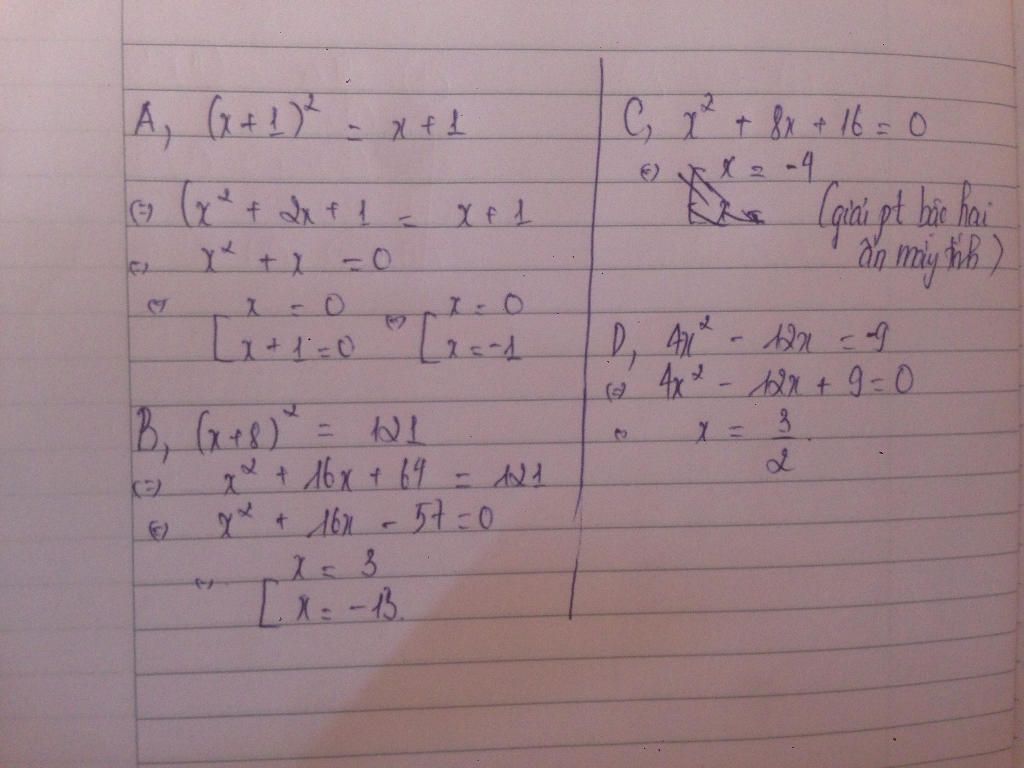 A, (x+1)² = x+1
(=) (x² + 2x + 1 = x+1
(=) x² + x = 0
(=) [ x = 0 (=) [ x = 0
x + 1 = 0 x = -1
B, (x+8)² = 121
(=) x² + 16x + 64 = 121
(=) x² + 16x - 57 = 0
(=) [ x = 3
x = -13.
C, x² + 8x + 16 = 0
(=) x = -4
(giải pt bậc hai
ấn máy tính)
D, 4x² - 12x = -9
(=) 4x² - 12x + 9 = 0
(=) x = 3/2.